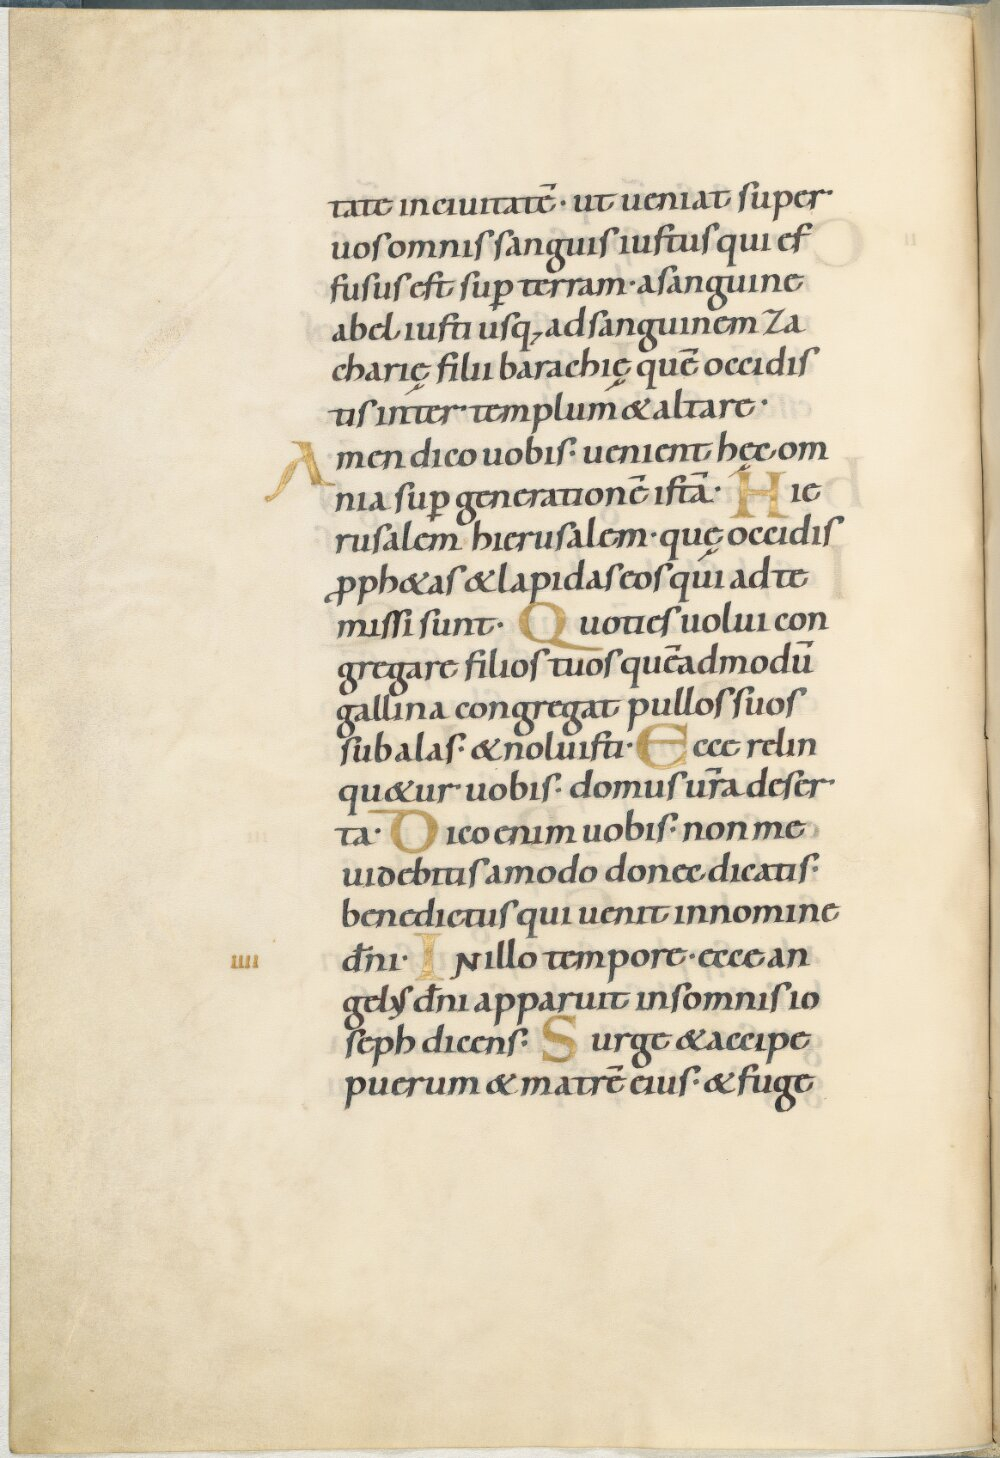 tate inciuitatē · ut ueniat super·
uos omnis sanguis iustus qui ef
fusus est sup̄ terram · a sanguine
abel iusti usq, ad sanguinem Za
charię filii barachię quē occidis
tis inter · templum & altare ·
Amen dico uobis · uenient hęc om
nia sup̄ generationē istā · Hie
rusalem hierusalem · quę occidis
ꝓph&as & lapidas eos qui ad te
missi sunt · Quoties uolui con
gregare filios tuos quēadmodū
gallina congregat pullos suos
sub alas · & noluisti · Ecce relin
qu&ur uobis · domus ur̄a deser·
ta · Dico enim uobis · non me
uidebitis amodo donec dicatis ·
benedictus qui uenit in nomine
IIII dn̄i · IN illo tempore · ecce an
gelus dn̄i apparuit in somnis io
seph dicens · Surge & accipe
puerum & matrē eius · & fuge